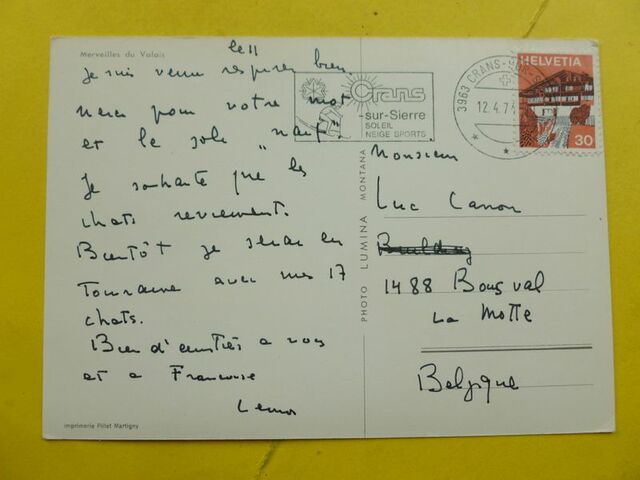 Merveilles du Valais
le 11
Je suis venu respirer bien.
Merci pour votre mot
et le "naïf"
Je souhaite que les
chats reviennent.
Bientôt je serai en
Touraine avec mes 17
chats.
Bien d'amitiés a vous
et a Francoise
imprimerie Pillet Martigny
PHOTO LUMINA MONTANA
Crans
-sur-Sierre
SOLEIL
NEIGE SPORTS
3963 CRANS-
12.4.7
HELVETIA
30
Monsieur
Luc Canon
Building
1488 Bousval
La Motte
Belgique